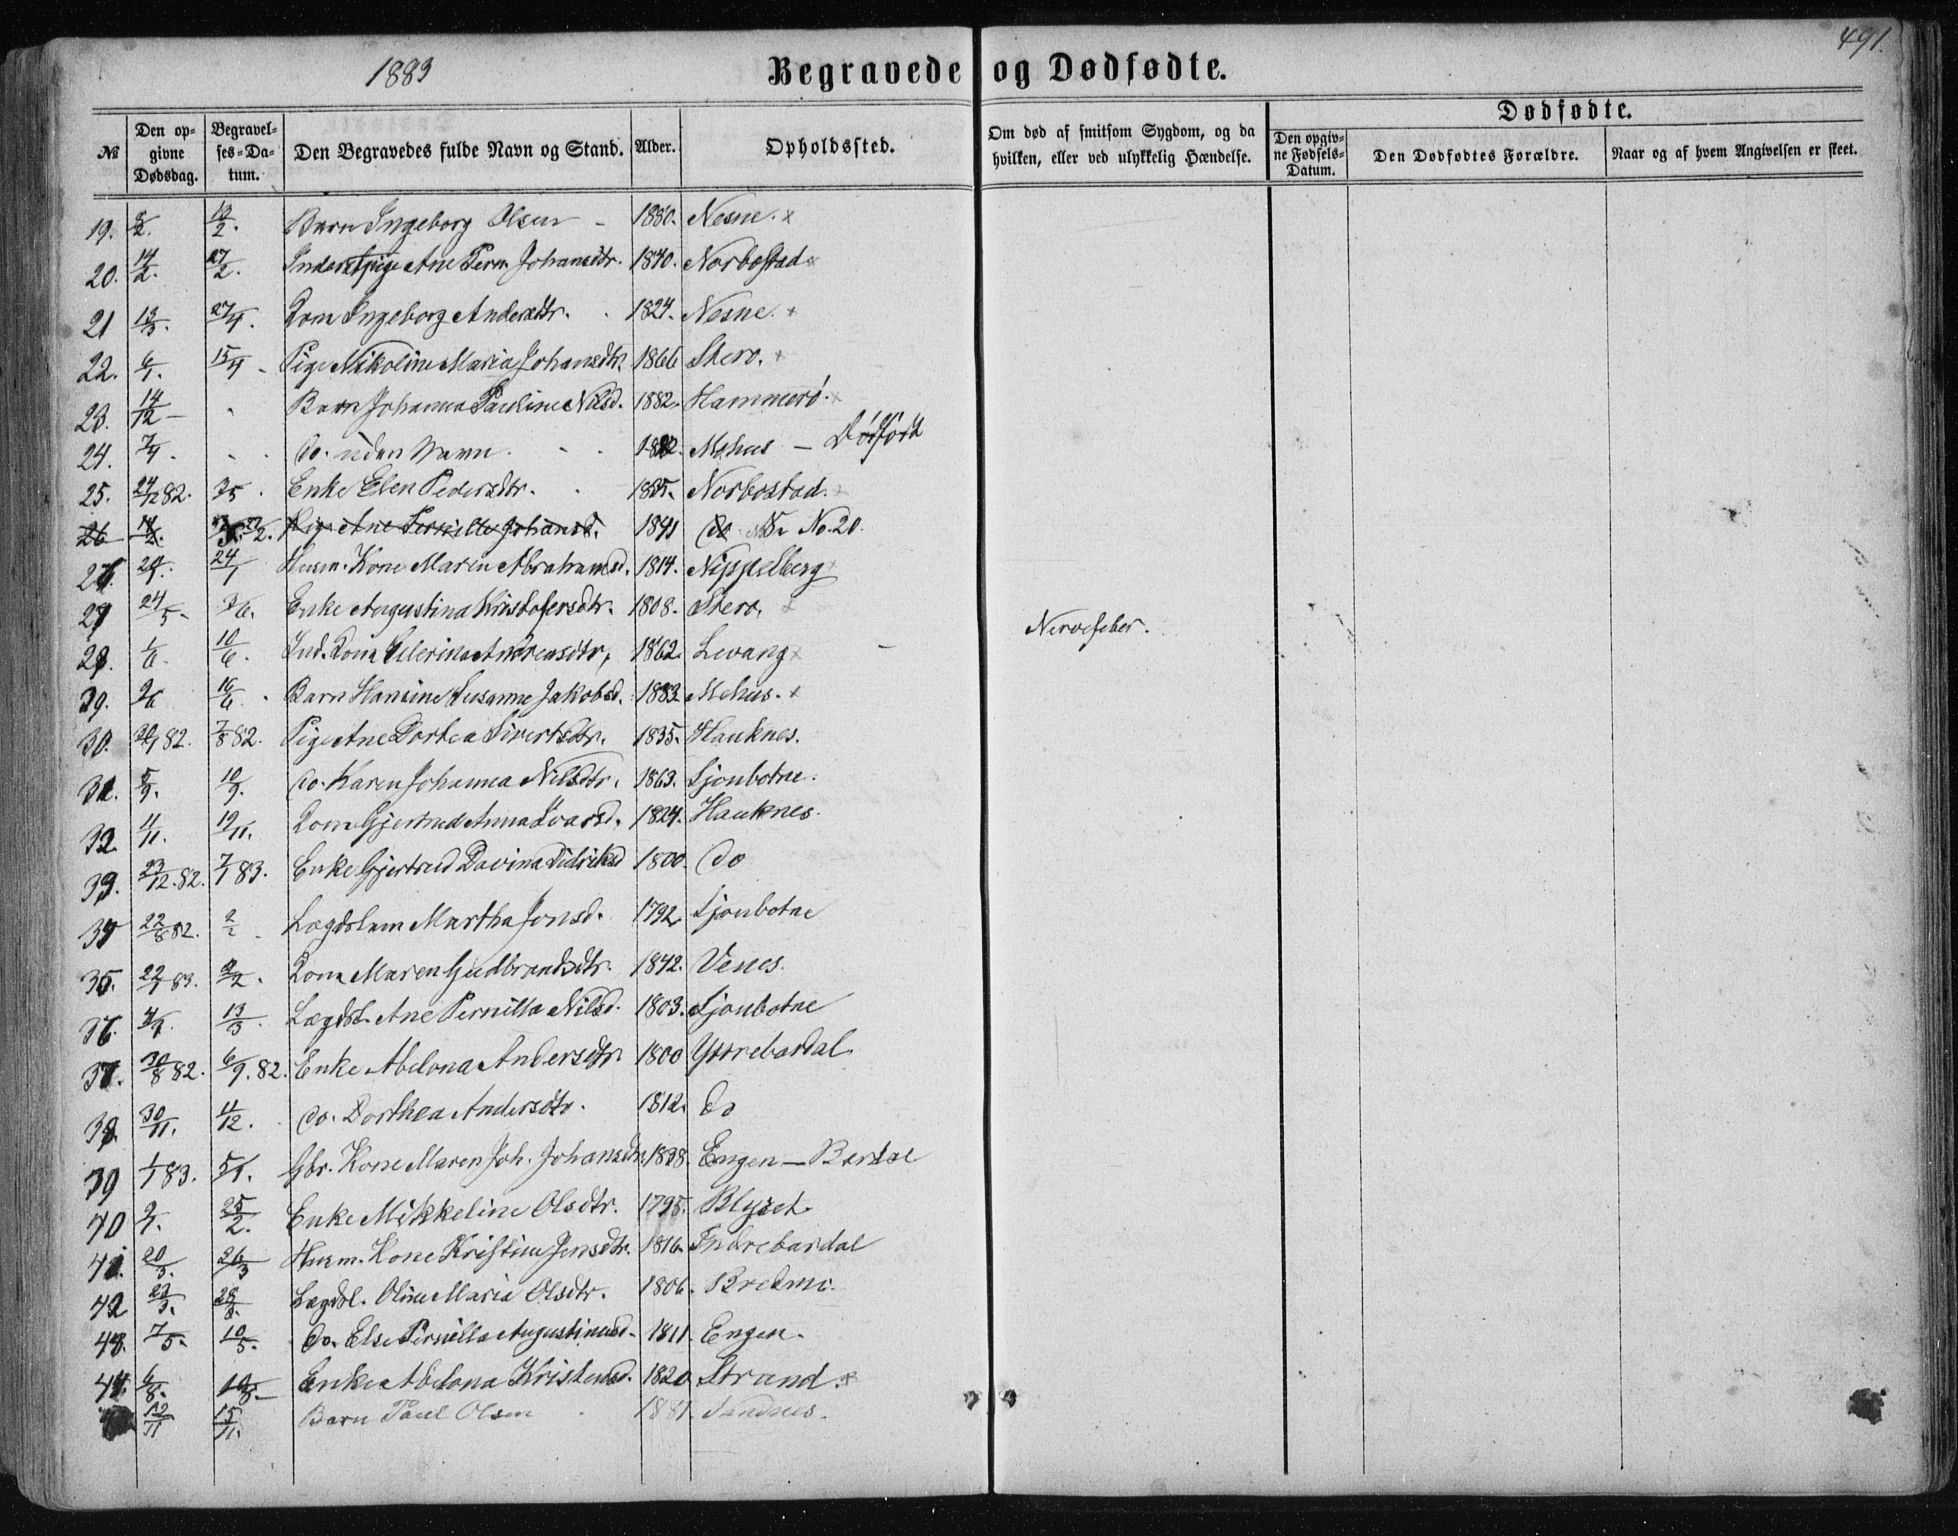 1883 Begravede og Dødfødte. 491.
№ Den opgivne Dødsdag. Begravelses-Datum. Den Begravedes fulde Navn og Stand. Alder. Opholdssted. Om død af smitsom Sygdom, og da hvilken, eller ved ulykkelig Hændelse. Dødfødte. Den opgivne Fødsels-Datum. Den Dødfødtes Forældre. Naar og af hvem Angivelsen er skeet.
19. 13/2. Barn Ingeborg Olsen 1880. Nesne. x
20. 14/2. 27/2. Inderstpige Ane Pern. Johansdtr. 1840. Norbostad x
21 13/3. 27/4. Kone Ingeborg Andersdtr. 1824. Nesne. x
22. 6/1. 15/4 Pige Nikoline Maria Johansdtr. 1866 Stero. x
23. 14/12 Barn Johanna Pauline Nilsd. 1882. Hammerö. x
24. 7/4. do. uden Navn. 1882. Mehus – Dödfödt
25. 24/12 82. 3/5. Enke Elen Pedersdtr. 1835. Norbostad.
26 14/2. 27/2. Pige Ane Pernille Johansd. 1841 do No. 20.
26. 24/1 Husm. Kone Maren Abrahamsd. 1814. Nippelberg
27. 24/5 3/6. Enke Augustina Kristofersdtr. 1808. Stero. x
28. 1/6. 10/6. Ind. Kone Andreasdtr, 1862. Levang x Nervefeber.
29. 2/6 16/6. Barn Hansine Susanne Jakobsd. 1883 Mehus. x
30. 82. 7/8 82. Pige Ane Dortea Sivertsdtr. 1835. Hauknes.
31. 5/9. 10/9. do. Karen Johanna Nilsdtr. 1863. Sjonbotne.
32. 4/11. 19/11. Kone Gjertrud Anna Ivarsd. 1824. Hauknes.
33. 23/12. 82. 7/1 83. Enke Gjertrud Davina Didriksd 1800. do
34 22/8 82. 2/2 Lægdslem Martha Jonsd. 1792. Sjonbotne
35. 22/1 83. 2/2. Kone Maren Gudbrandsdtr. 1842. Venes.
36. 13/3. Lægdsl. Ane Pernilla Nilsd. 1803. Sjonbotne
37. 30/8 82. 6/9. 82. Enke Abelona Andersdtr. 1800 Yttrebardal
38. 30/11. 4/12. do. Dorthea Andersdtr. 1812. do
39 1/1 83. 5/1. Gbr. Kone Maren Joh. Johansdtr. 1828. Engen – Bardal
40 2/1. 25/2. Enke Mikkeline Olsdtr. 1795. Blyset.
41. 20/3. 26/3 Husm. Kone Kristine Jensdtr. 1816. Indrebardal
42 22/3. 28/3. Lægdsl. Oline Maria Olsdtr. 1806. Bredmo.
43. 7/5. 10/5. do. Else Pernilla Augustinusd. 1811. Engen.
44. 6/8. 10/8. Enke Abelona Kristensd. 1820 Strand. x
12/11 15/11. Barn Paul Olsen 1881. Sandnes.